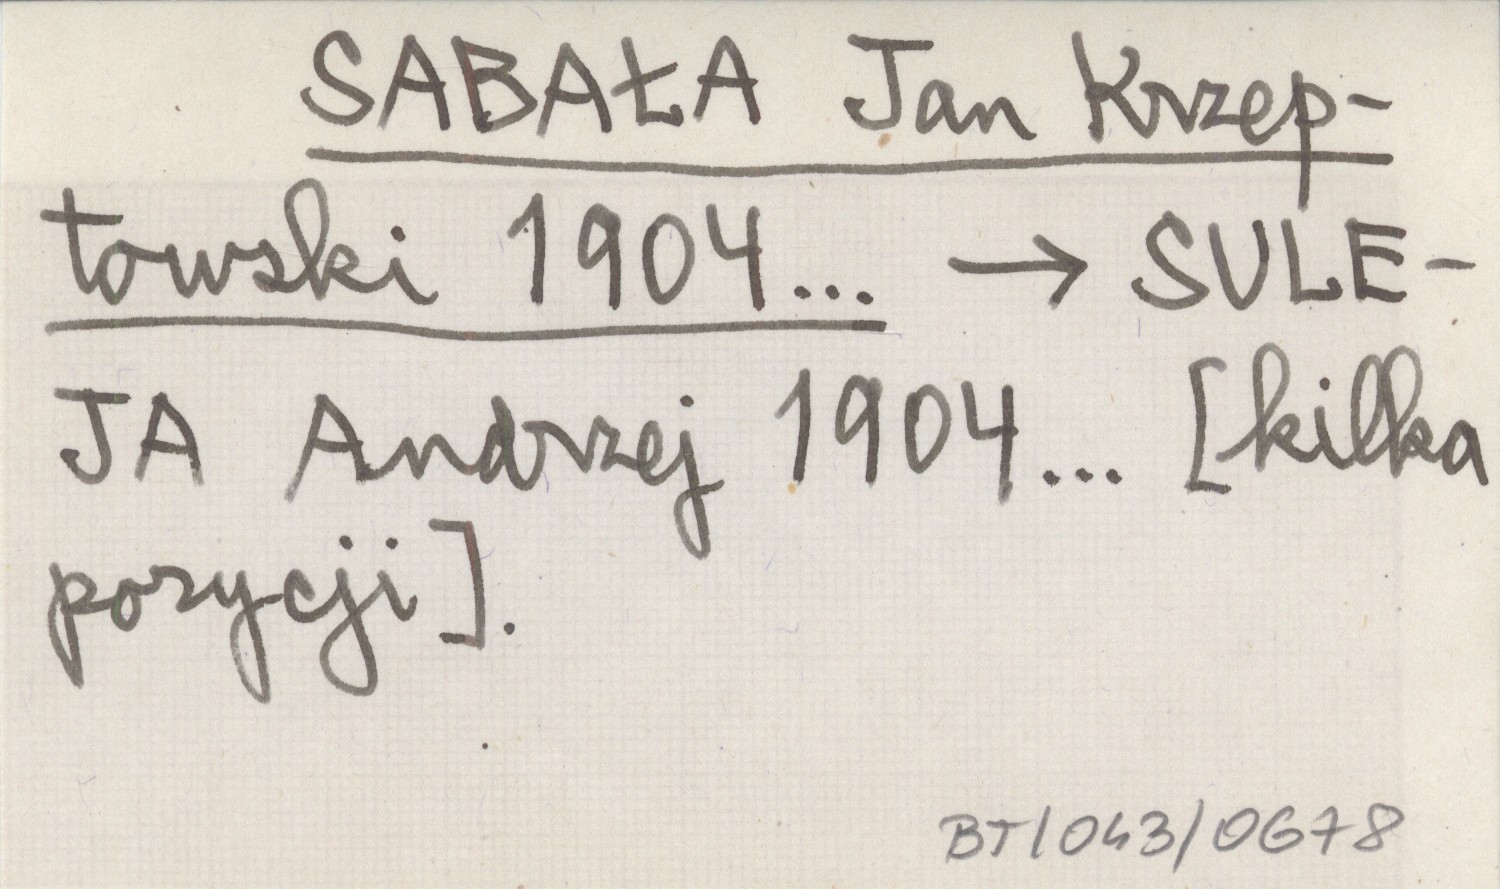 SABAŁA Jan Krzep-
towski 1904... → SULE-
JA Andrzej 1904... [kilka
pozycji].
BT/043/0678